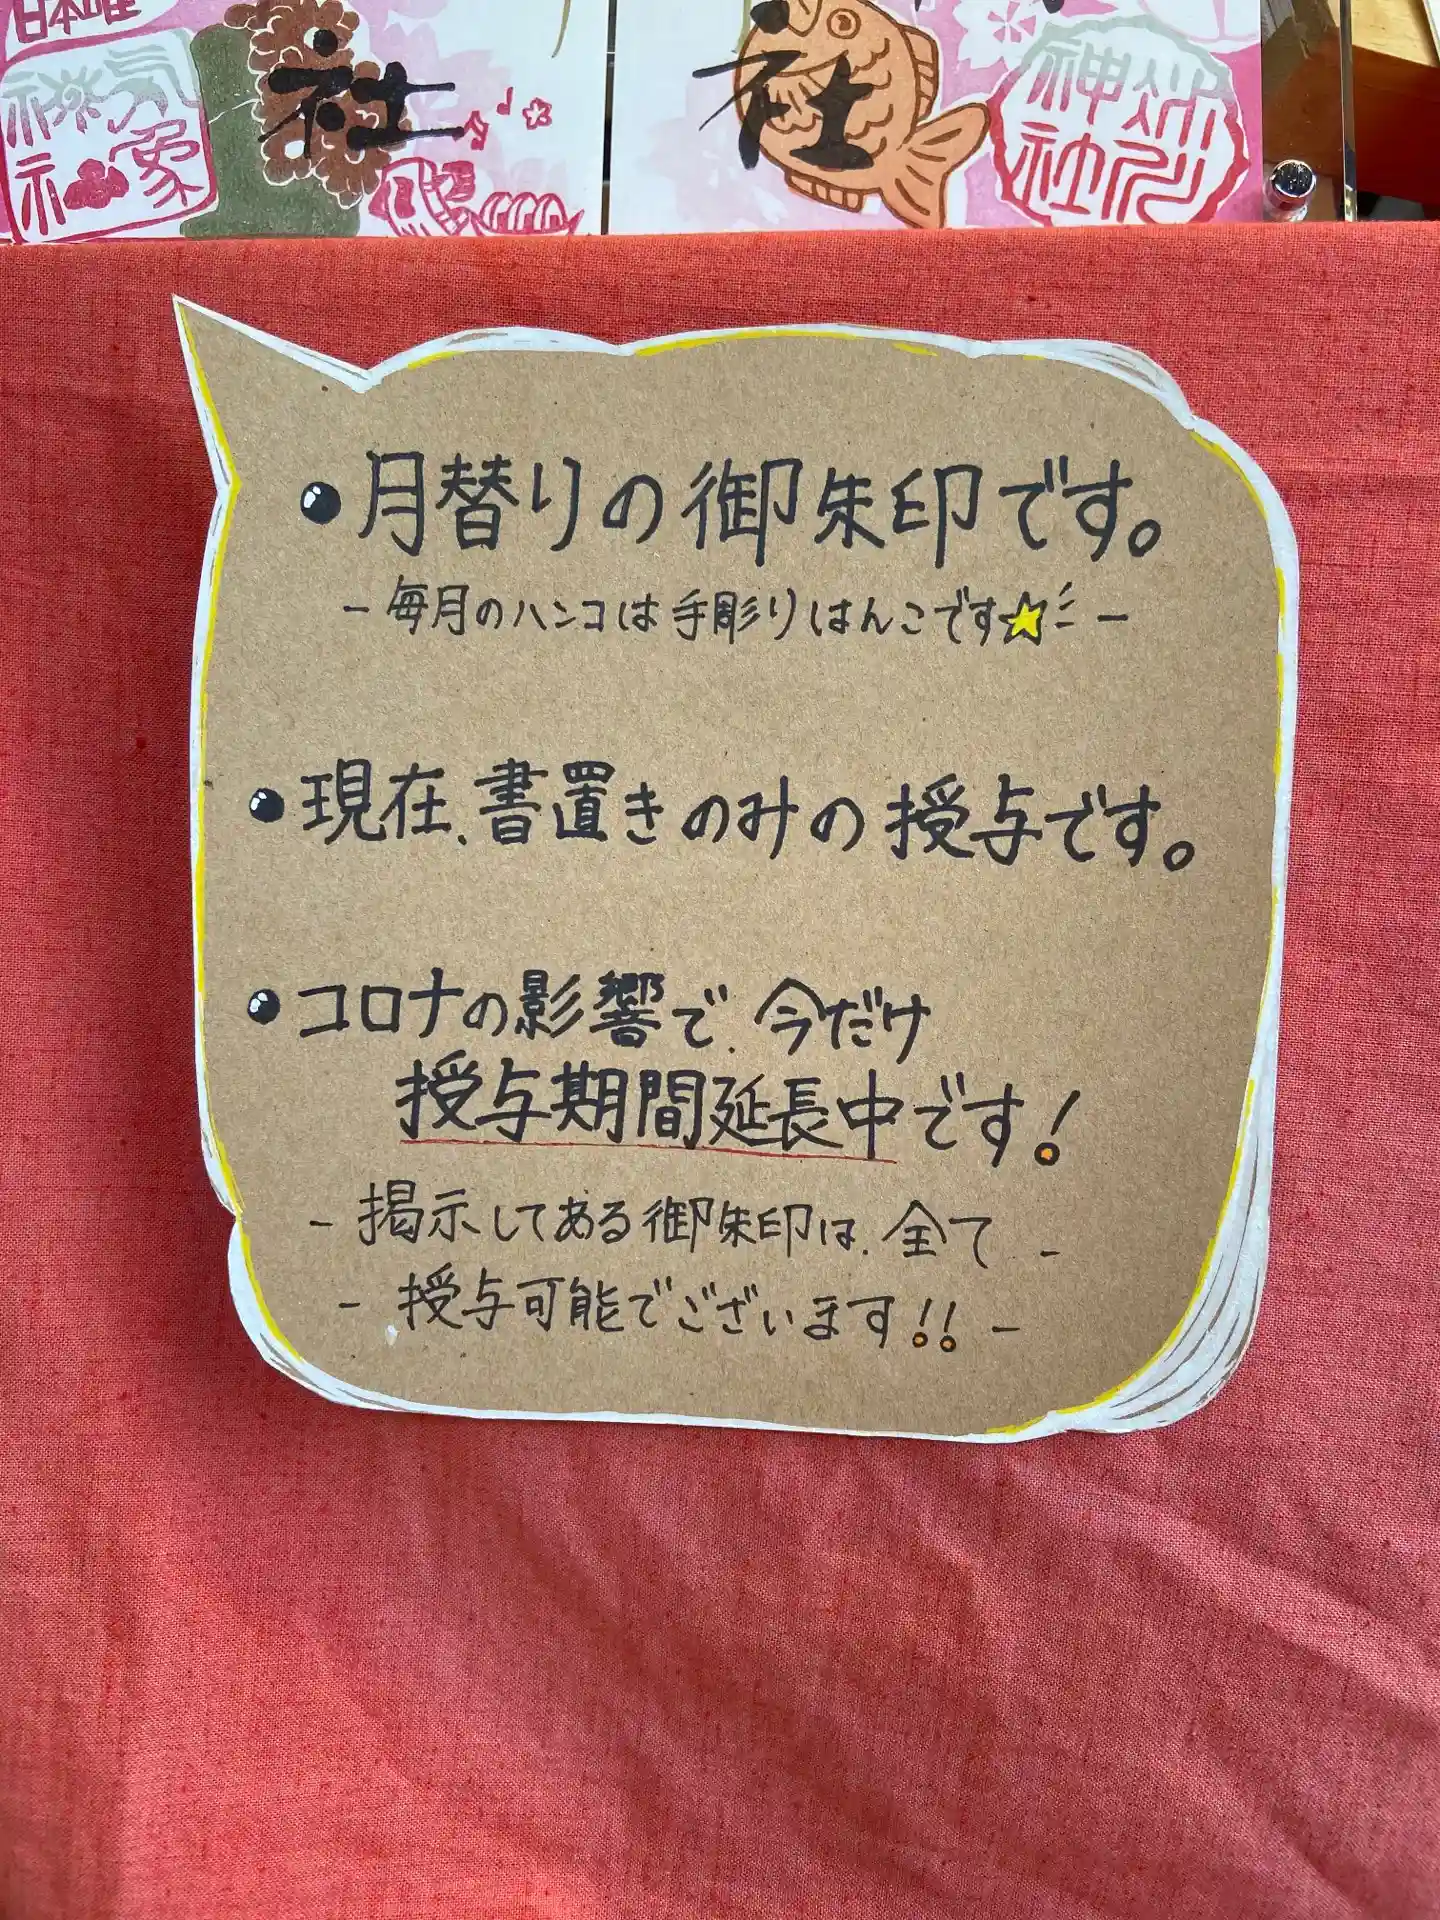 日本唯
社
社
神
社
・月替りの御朱印です。
- 毎月のハンコは手彫りはんこです☆ -
・現在、書置きのみの授与です。
・コロナの影響で、今だけ
授与期間延長中です!
- 掲示してある御朱印は、全て -
- 授与可能でございます!! -